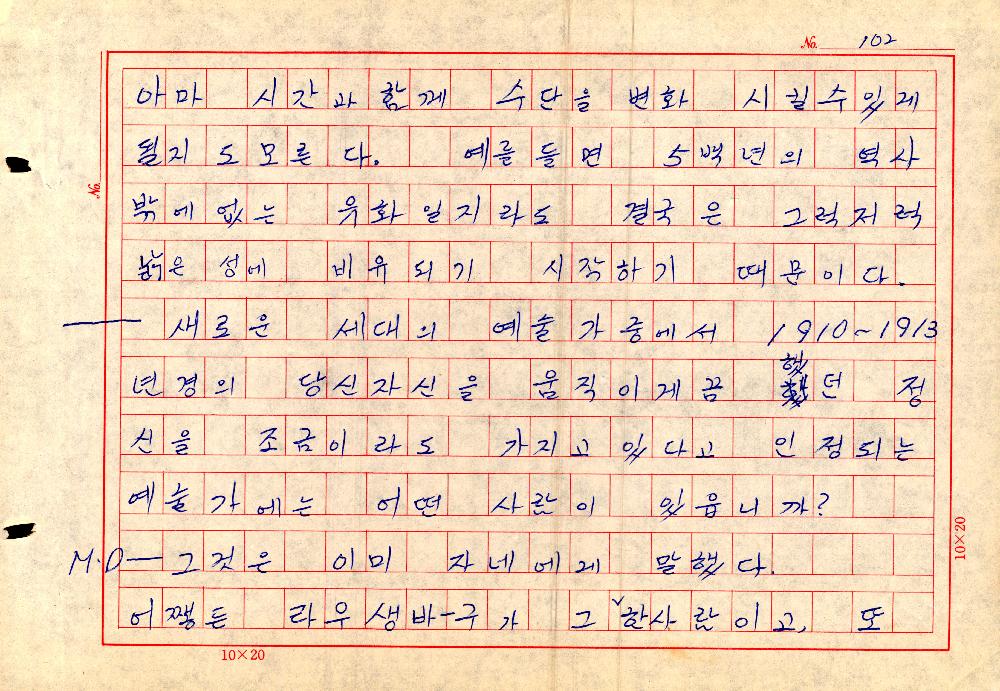 No. 102
아마 시간과 함께 수단을 변화 시킬수있게
될지도모른다. 예를들면 5백년의 역사
밖에없는 유화일지라도 결국은 그럭저럭
늙은 성에 비유되기 시작하기 때문이다.
— 새로운 세대의 예술가중에서 1910~1913
년경의 당신자신을 움직이게끔 했던 정
신을 조금이라도 가지고 있다고 인정되는
예술가에는 어떤 사람이 있읍니까?
M.D— 그것은 이미 자네에게 말했다.
어쨌든 라우생바-구가 그 한사람이고, 또
No.
10×20
10×20